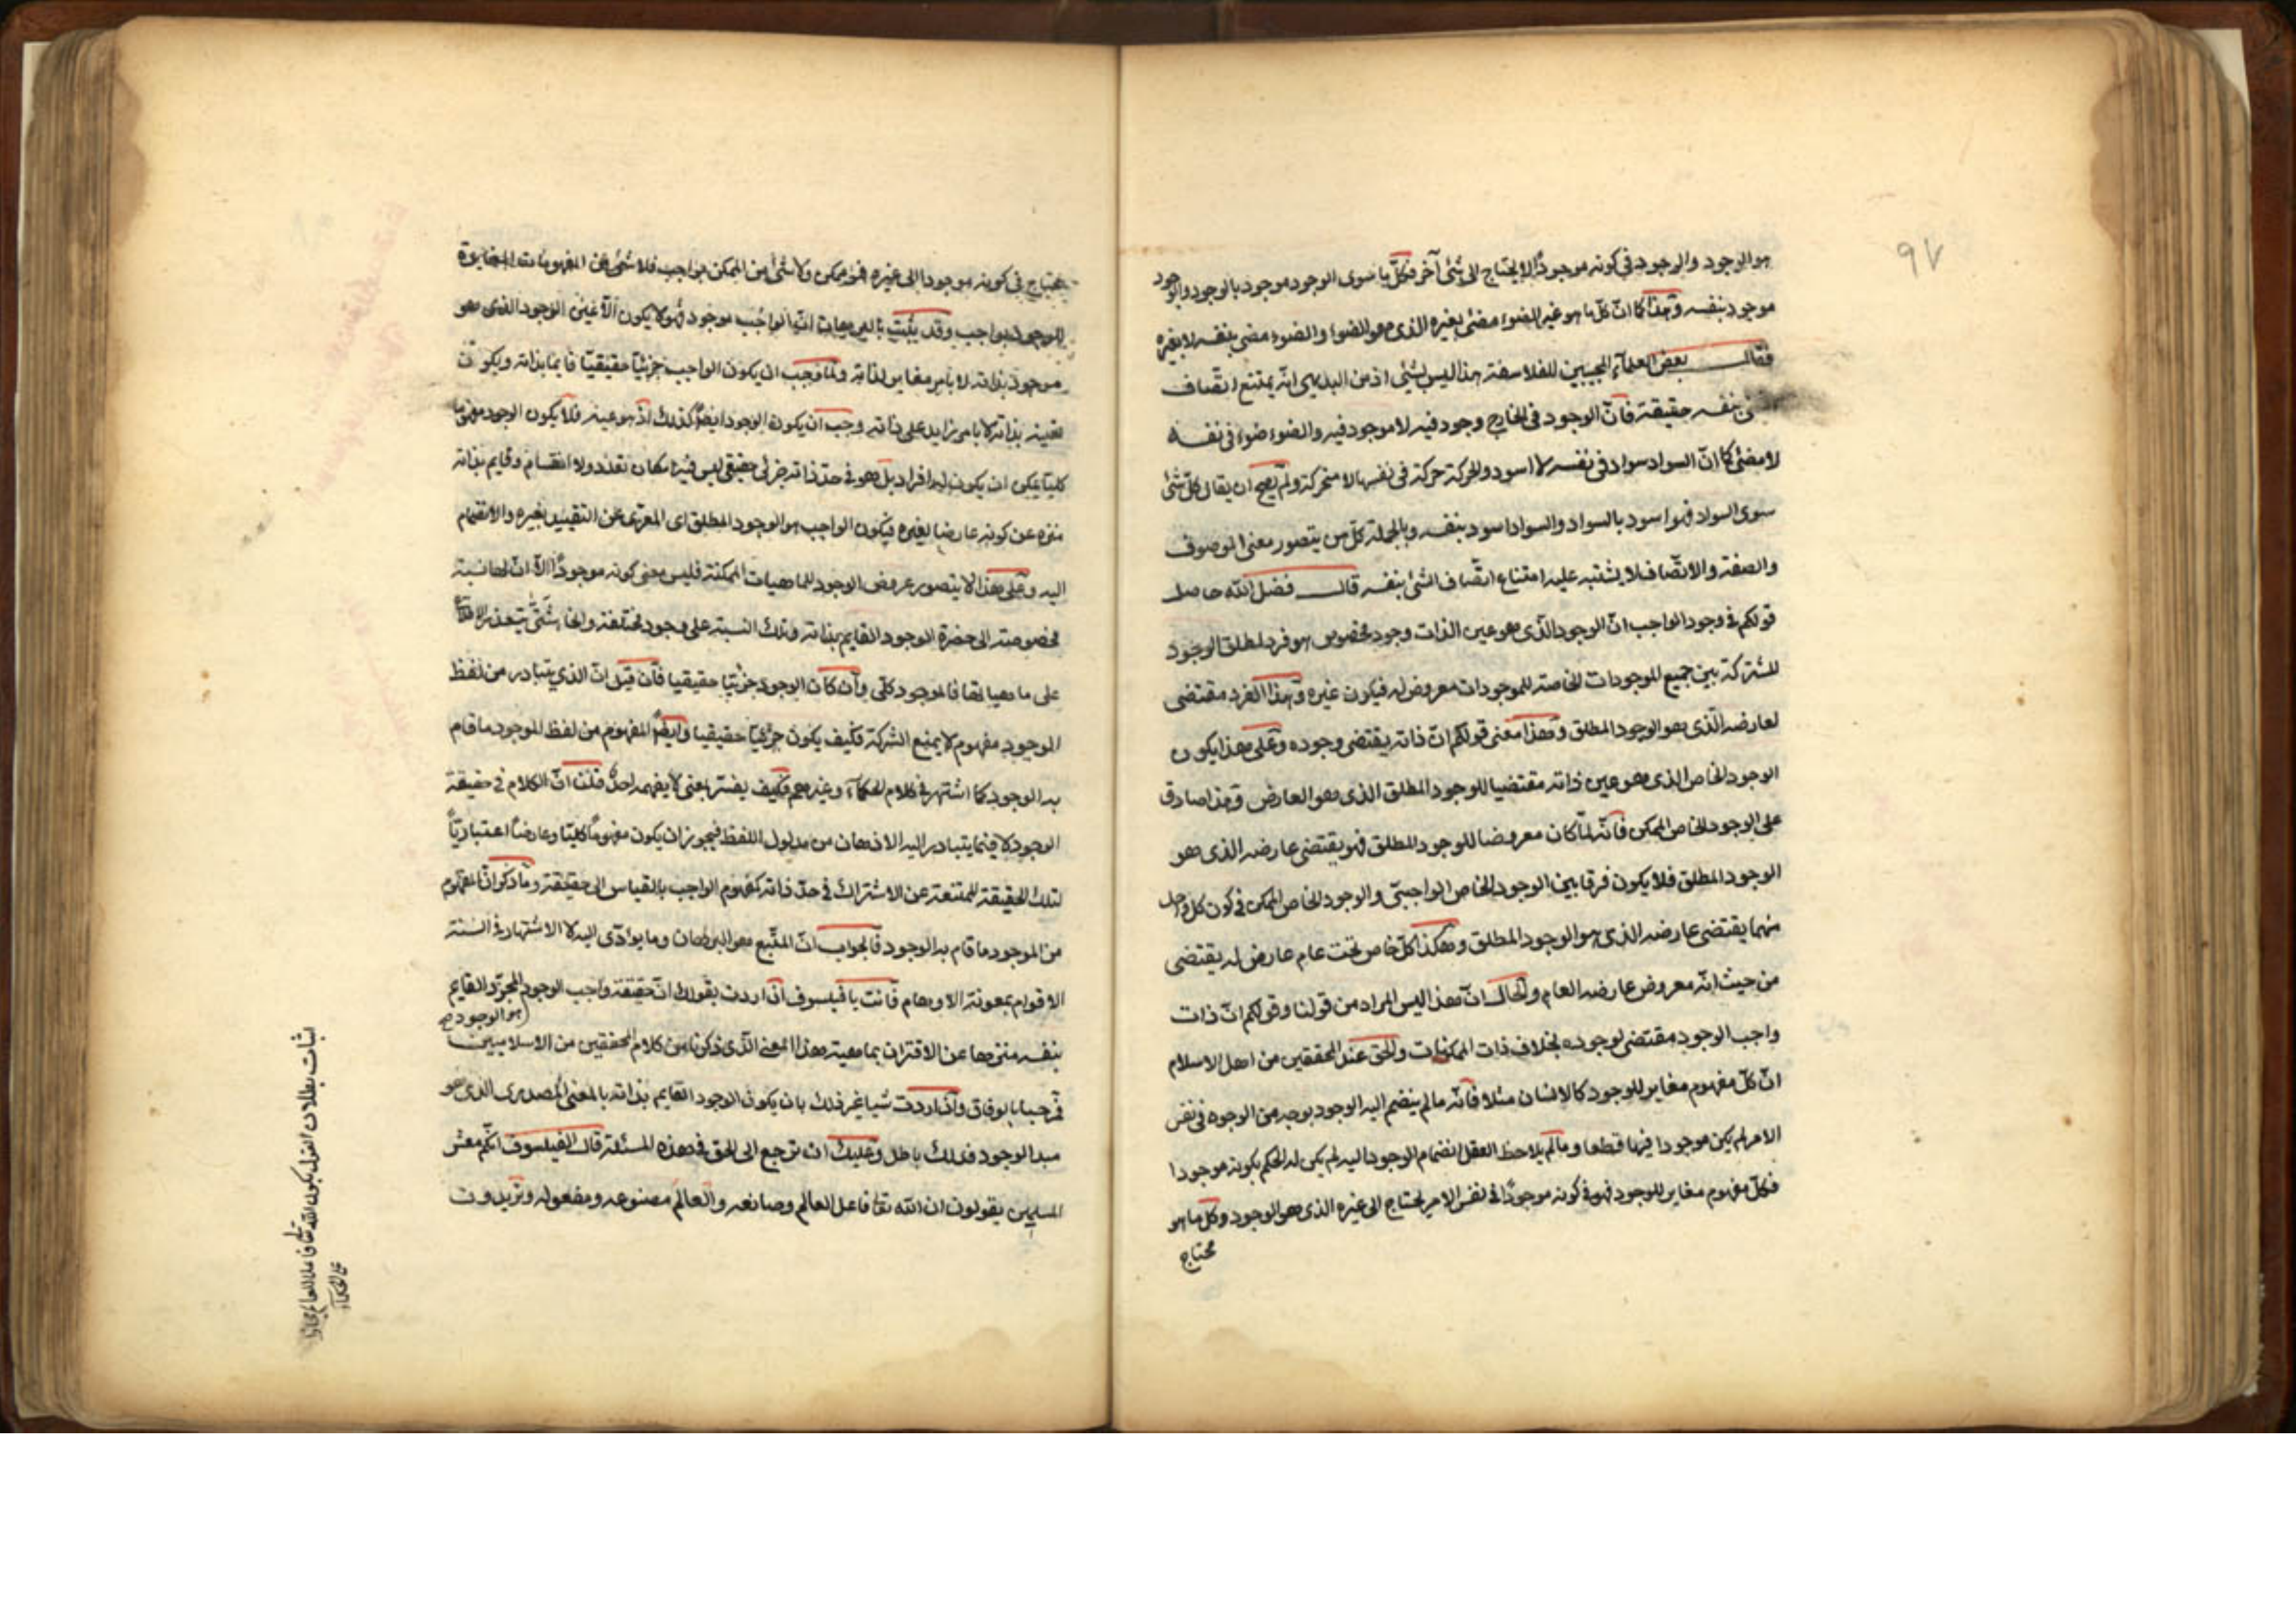 ٩٧
هو الوجود والوجود في كونه موجودًا لا يحتاج الى شئ آخر فكلّ ما سوى الوجود موجود بالوجود والوجود
موجود بنفسه وهذا كما انّ كل ما هو غير الضوء مضئ بغيره الذى هو الضوء والضوء مضئ بنفسه لا بغيره
فقال بعض العلمآء المجيبين للفلاسفة هذا ليس بشئ اذ من البديهى انّه يمتنع اتّصاف
بنفسه حقيقة فانّ الوجود في الخارج وجود فيه لا موجود فيه والضوء ضوء في نفسه
لا مضئ كما انّ السواد سواد في نفسه لا اسود والحركة حركة في نفسها لا متحركة ولم يصح ان يقال كل شئ
سوى السواد فهو اسود بالسواد والسواد اسود بنفسه وبالجملة كلّ من يتصور معنى الموصوف
والصفة والاتّصاف لا يشتبه عليه امتناع اتّصاف الشئ بنفسه قال فضل الله حاصل
قولكم في وجود الواجب انّ الوجود الّذى هو عين الذات وجود مخصوص هو فرد لمطلق الوجود
المشتركة بين جميع الموجودات الخاصة للموجودات معروض له فيكون غيره وهذا الفرد مقتضى
لعارضه الّذى هو الوجود المطلق وهذا معنى قولكم انّ ذاته يقتضى وجوده وعلى هذا يكون
الوجود الخاص الذى هو عين ذاته مقتضيا للوجود المطلق الذى هو العارض وهذا صادق
على الوجود الخاص الممكن فانّه لمّا كان معروضا للوجود المطلق فهو يقتضى عارضه الذى هو
الوجود المطلق فلا يكون فرقا بين الوجود الخاص الواجبىّ والوجود الخاص الممكن في كون كل واحد
منهما يقتضى عارضه الذى هو الوجود المطلق وهكذا كلّ خاص تحت عام عارض له يقتضى
من حيث انّه معروض عارضه العام والحال انّ هذا ليس المراد من قولنا وقولكم انّ ذات
واجب الوجود مقتضى لوجوده بخلاف ذات الممكنات والحق عند المحققين من اهل الاسلام
انّ كلّ مفهوم مغاير للوجود كالانسان مثلا فانّه ما لم ينضم اليه الوجود بوجه من الوجوه في نفس
الامر لم يكن موجودا فيها قطعا وما لم يلاحظ العقل انضمام الوجود اليه لم يكن له الحكم بكونه موجودا
فكلّ مفهوم مغاير للوجود فهو في كونه موجودًا في نفس الامر يحتاج الى غيره الذى هو الوجود وكل ما هو
محتاج
يحتاج في كونه موجودا الى غيره فهو ممكن ولا شئ من الممكن بواجب فلا شئ من المفهومات المغايرة
للوجود بواجب وقد يثبت بالبرهان انّ الواجب موجود فهو لا يكون الّا عين الوجود الذى هو
موجود بذاته لا بامر مغاير لذاته ولمّا وجب ان يكون الواجب جزئيّا حقيقيّا قايما بذاته ويكون
تعينه بذاته لا بامر زايد على ذاته وجب ان يكون الوجود ايضًا كذلك اذ هو عينه فلا يكون الوجود مفهوما
كليّا يمكن ان يكون له افراد بل هو في حدّ ذاته جزئى حقيقى ليس فيه امكان تعدد ولا انقسام وقايم بذاته
منزه عن كونه عارضا لغيره فيكون الواجب هو الوجود المطلق اى المعرّى عن التقييد بغيره والانضمام
اليه وعلى هذا لا يتصور عروض الوجود للماهيات الممكنة فليس معنى كونه موجودًا الّا انّ لها نسبة
مخصوصة الى حضرة الوجود القايم بذاته وتلك النسبة على وجود مختلفة وانحآ شتّى يتعذر
على ماهياتها فالموجود كلّى وان كان الوجود جزئيّا حقيقيا فان قيل انّ الذي يتبادر من لفظ
الموجود مفهوم لا يمنع الشركة فكيف يكون جزئيّا حقيقيا وايضًا المفهوم من لفظ الموجود ما قام
به الوجود كما اشتهر في كلام الحكمآء وغيرهم فكيف يفسّر بمعنى لا يفهمه احدٌ قلنا انّ الكلام في حقيقة
الوجود لا فيما يتبادر اليه الاذهان من مدلول اللفظ فيجوز ان يكون مفهومًا كليّا وعارضًا اعتباريّا
لتلك الحقيقة الممتنعة عن الاشتراك في حدّ ذاته كمفهوم الواجب بالقياس الى حقيقته وما ذكر انّ المفهوم
من الموجود ما قام به الوجود فالجواب انّ المتّبع هو البرهان وما يوادّى اليه لا الاشتهار في السنة
الاقوام بمعونة الاوهام فانت يا فيلسوف ان اردت بقولك انّ حقيقة واجب الوجود هو الوجود المجرّد القايم
بنفسه منزها عن الاقتران بماهية هذا المعنى الّذى ذكرناه من كلام المحققين من الاسلاميين
فمرحبا بالوفاق وان اردت شيا غير ذلك بان يكون الوجود القايم بذاته بالمعنى المصدرى الذى هو
مبدا الوجود فذلك باطل وعليك ان ترجع الى الحق في هذه المسئلة قال الفيلسوف انّكم معشر
المسلمين يقولون ان الله تعا فاعل العالم وصانعه والعالم مصنوعه ومفعوله وتريدون
اثبات بطلان القول بكون الله تعالى فاعلا للعالم مجازا
على الحكمآء